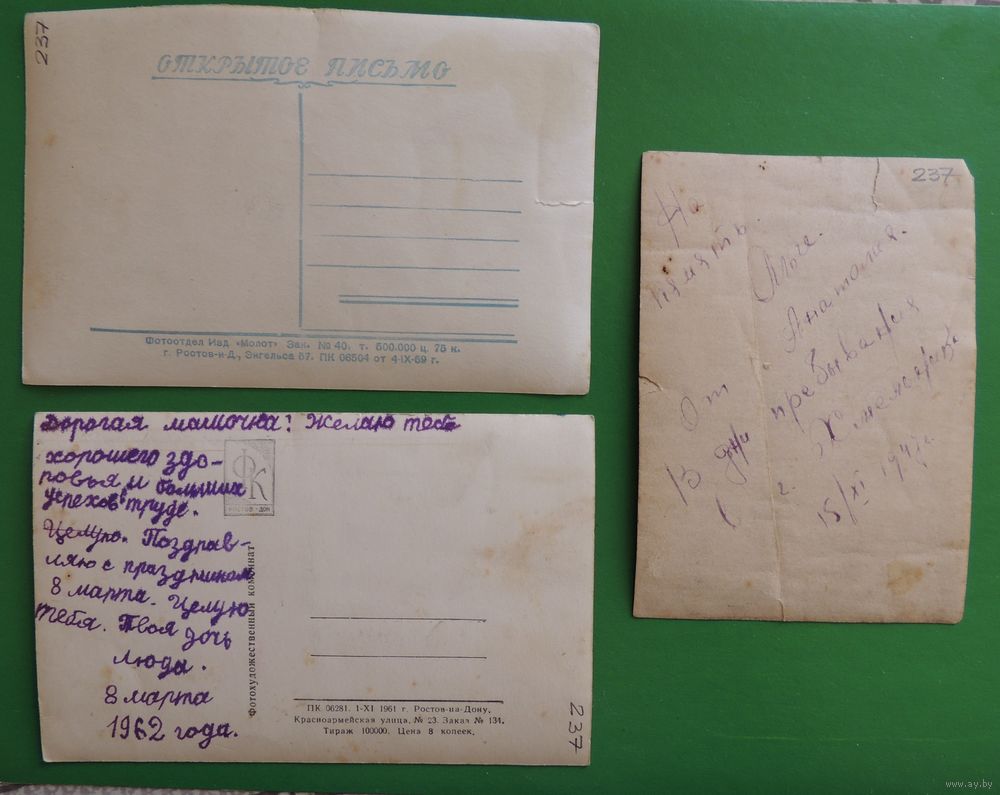 237
ОТКРЫТОЕ ПИСЬМО
Фотоотдел Изд «Молот» Зак. № 40. т. 500.000 ц. 75 к.
г. Ростов-н-Д., Энгельса 57. ПК 06504 от 4-IX-59 г.
Дорогая мамочка! Желаю тебе
хорошего здо-
ровья и больших
успехов в труде.
Целую. Поздрав-
ляю с праздником
8 марта. Целую
тебя. Твоя дочь
Люда.
8 марта
1962 года.
ФК
РОСТОВ-ДОН
Фотохудожественный комбинат
ПК 06281. 1-XI 1961 г. Ростов-на-Дону.
Красноармейская улица, № 23. Заказ № 134.
Тираж 100000. Цена 8 копеек.
237
237
На
память
От Анатолия.
В дни пребывания
г.
15/XI 194 г.
www.ay.by